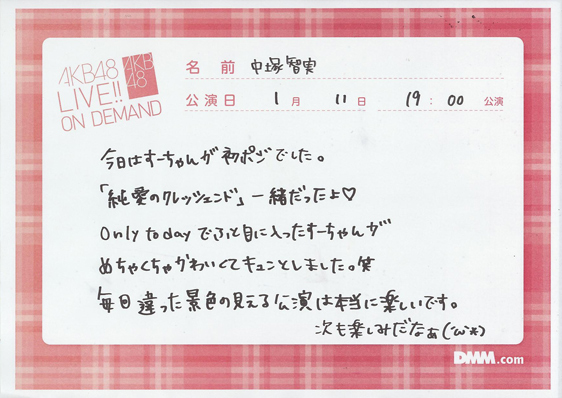 AKB48
LIVE!!
ON DEMAND
AKB
48
名 前 中塚智実
公演日 1月 11日 19:00 公演
今日はすーちゃんが初ポジでした。
「純愛のクレッシェンド」一緒だったよ♡
Only todayでふと目に入ったすーちゃんが
めちゃくちゃかわいくてキュンとしました。笑
毎日違った景色の見える公演は本当に楽しいです。
次も楽しみだなぁ(´ω`*)
DMM.com